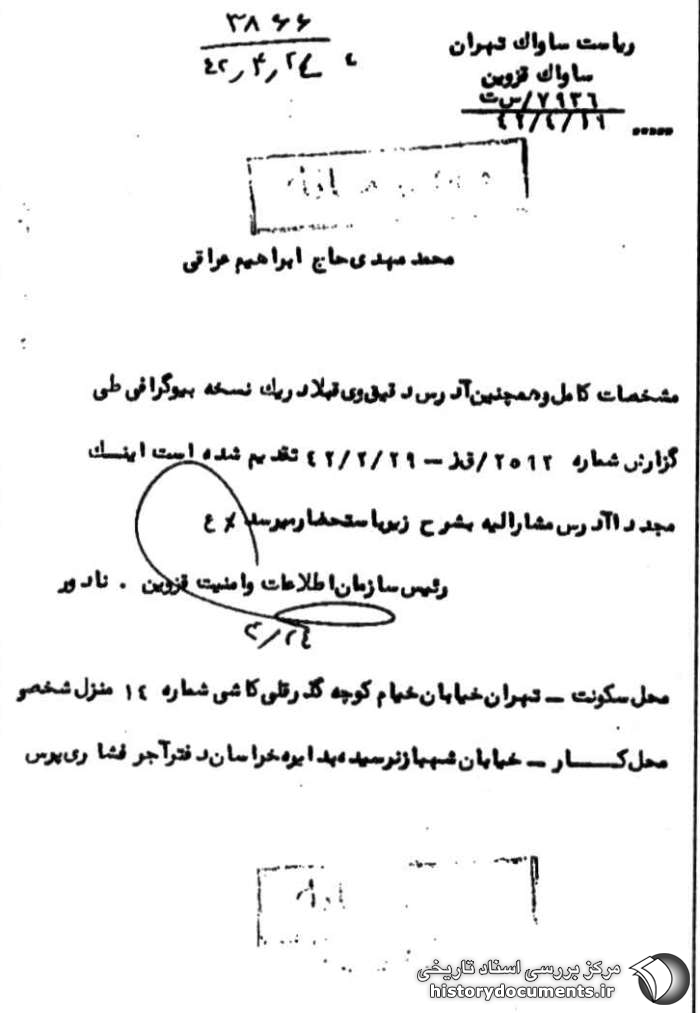 ریاست ساواك تهران
ساواك قزوین
۷۹۳۶/س‌ت
۴۲/۴/۱۹
۳۸۶۶
۴۲٫۴٫۲۴
محمد مهدی حاج ابراهیم عراقی
مشخصات کامل وهمچنین آدرس دقیق وی قبلا در یك نسخه بیوگرافی طی
گزارش شماره ۲۵۹۲/ق‌ز – ۴۲/۲/۲۹ تقدیم شده است اینــك
مجددا آدرس مشارالیه بشرح زیر باستحضار میرسد ٪ ع
رئیس سازمان اطلاعات وامنیت قزوین . نادور
۴/۲۴
محل سکونت – تهران خیابان خیام کوچه گذر قلی کاشی شماره ۱۴ منزل شخصی
محل کـــــار – خیابان شهباز نرسیده به خراسان دفتر آجر فشاری پرس
مرکز بررسی اسناد تاریخی
historydocuments.ir